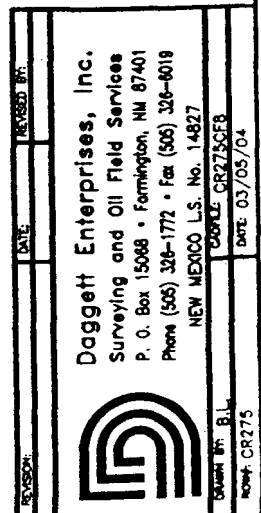 REVISION: DATE: REVISED BY:
Daggett Enterprises, Inc.
Surveying and Oil Field Services
P. O. Box 15068 • Farmington, NM 87401
Phone (505) 326-1772 • Fax (505) 326-6019
NEW MEXICO L.S. No. 14827
DRAWN BY: B.L. CADFILE: CR275CF8
ROW#: CR275 DATE: 03/05/04